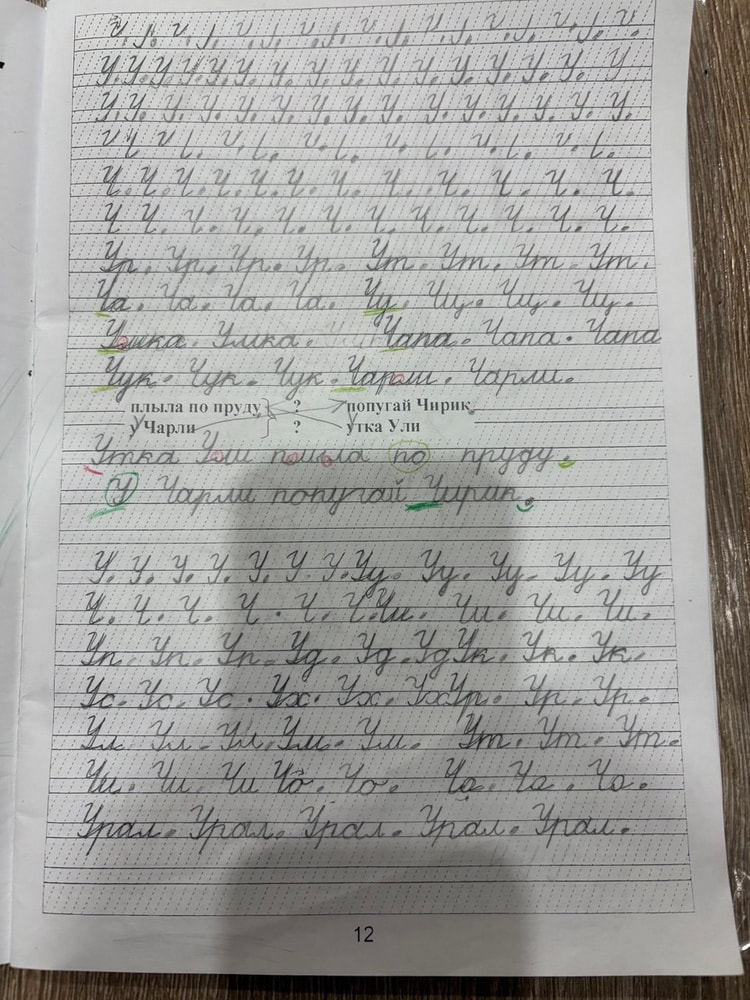 У У. У. У. У. У. У. У. У. У. У. У. У. У. У. У
У. У. У. У. У. У. У. У. У. У. У. У. У. У. У.
Ч. Ч. Ч. Ч. Ч. Ч. Ч. Ч. Ч. Ч. Ч. Ч. Ч.
Ч Ч. Ч. Ч. Ч. Ч. Ч. Ч. Ч. Ч. Ч. Ч.
Ур. Ур. Ур. Ур. Ут. Ут. Ут. Ут.
Ча. Ча. Ча. Ча. Чу. Чу. Чу. Чу.
Умка. Умка. Чапа. Чапа. Чапа
Чук. Чук. Чук. Чарли. Чарли.
плыла по пруду ? попугай Чирик.
у Чарли ? утка Ули
Утка Ули плыла по пруду.
У Чарли попугай Чирик.
У. У. У. У. У. У. У. Уу. Уу. Уу. Уу. Уу
Ч. Ч. Ч. Ч. Ч. Ч. Чи. Чи. Чи. Чи.
Уп. Уп. Уп. Уд. Уд. Уд Ук. Ук. Ук.
Ус. Ус. Ус. Ух. Ух. Ух Ур. Ур. Ур.
Ул Ул. Ул. Ум. Ум. Ут. Ут. Ут.
Чи. Чи. Чи Чо. Чо. Ча. Ча. Ча.
Урал. Урал. Урал. Урал. Урал.
12